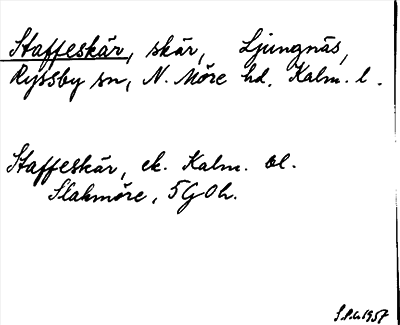 Staffeskär, skär, Ljungnäs,
Ryssby sn, N. Möre hd. Kalm. l.
Staffeskär, ek. Kalm. bl.
Slakmöre, 5G0h.
S.P.G. 1957